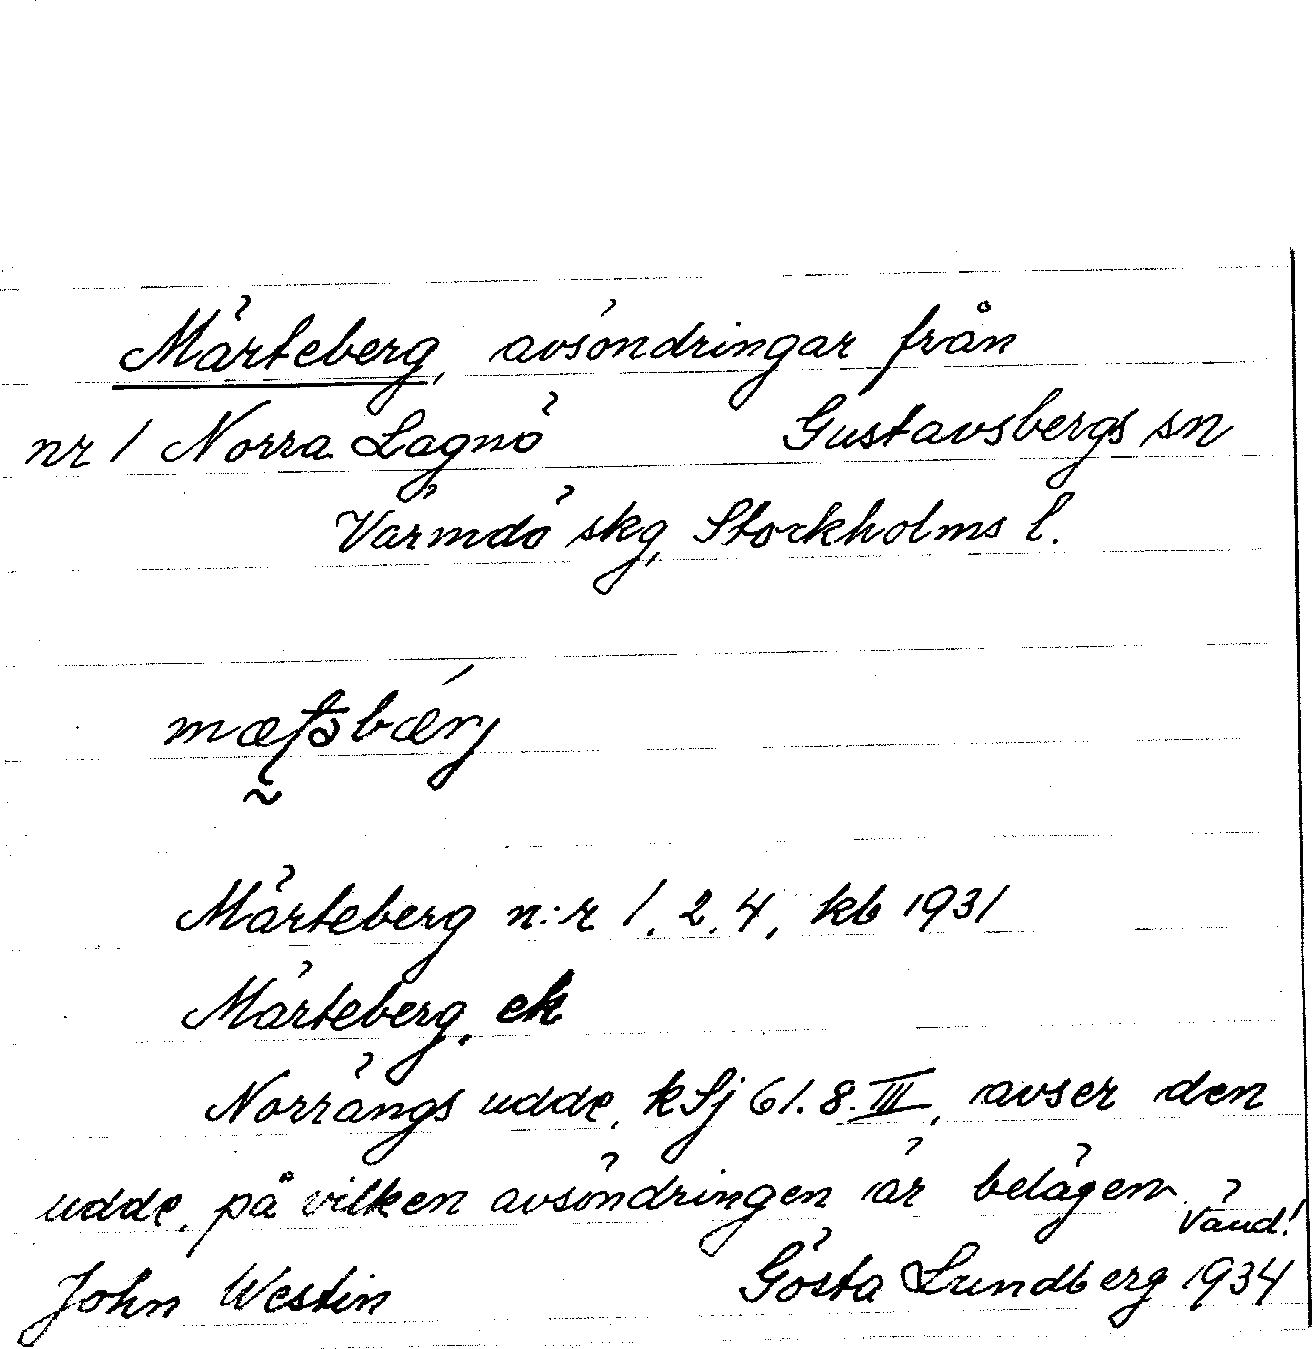 Märteberg, avsöndringar från
nr 1 Norra Lagnö Gustavsbergs sn
Värmdö skg, Stockholms l.
Märteberg n:r 1, 2, 4, kb 1931
Märteberg, ek
Norrängs udde, kSj 61.8.III, avser den
udde, på vilken avsöndringen är belägen.
Vänd!
John Westin Gösta Lundberg 1934